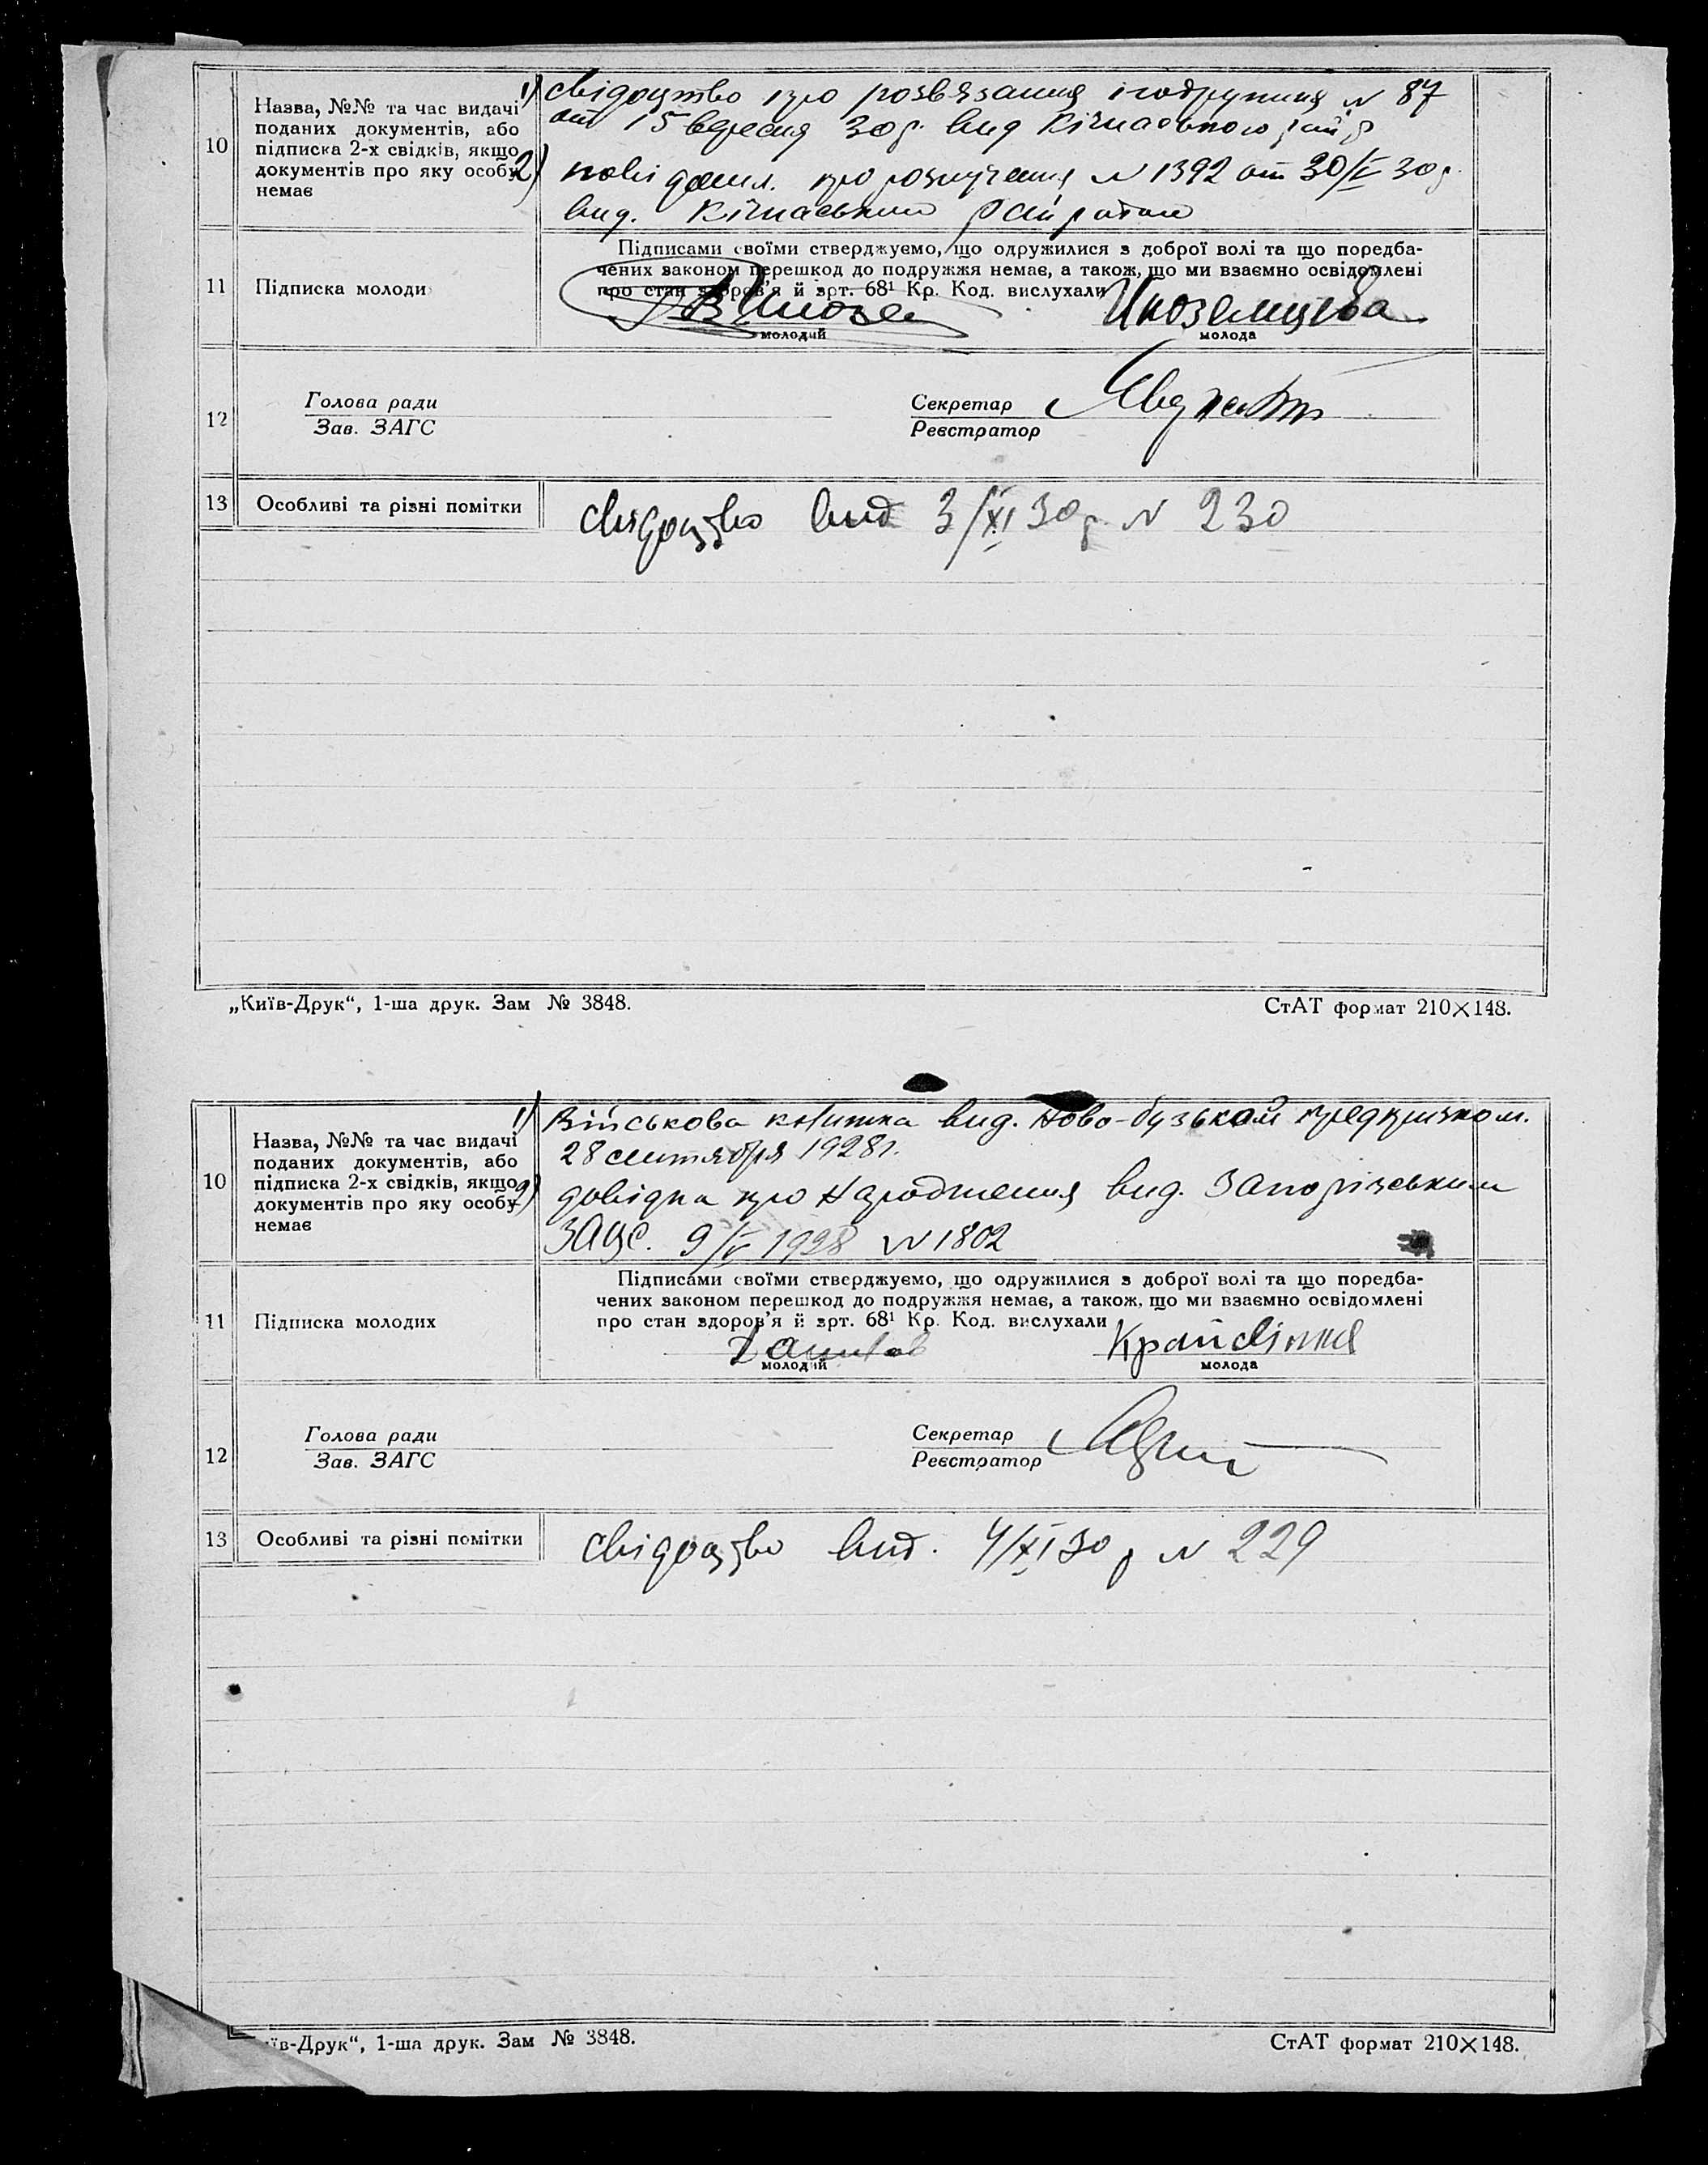 10
Назва, №№ та час видачі
поданих документів, або
підписка 2-х свідків, якщо
документів про яку особу
немає
1) свідоцтво про розвʼязання подружжя N 87
от 15 вересня 30 р. вид Кічкаського
2) повідомл. про розлучення N 1392 от 30/V 30 р.
вид. Кічкаським райратом
11
Підписка молоди
Підписами своїми стверджуємо, що одружилися з доброї волі та що поредба-
чених законом перешкод до подружжя немає, а також, що ми взаємно освідомлені
про стан здоров'я й арт. 68¹ Кр. Код. вислухали
Иноземцева
молодий
молода
12
Голова ради
Зав. ЗАГС
Секретар
Реєстратор
13
Особливі та різні помітки
свідоцтво вид 3/XI 30 р N 230
„Київ-Друк“, 1-ша друк. Зам № 3848.
СтАТ формат 210×148.
10
Назва, №№ та час видачі
поданих документів, або
підписка 2-х свідків, якщо
документів про яку особу
немає
1) Військова книжка вид. Ново-бузькой
28 сентября 1928 г.
2) довідка про Народження вид. Запорізським
ЗАГС. 9/IV 1928 N 1802
11
Підписка молодих
Підписами своїми стверджуємо, що одружилися з доброї волі та що поредба-
чених законом перешкод до подружжя немає, а також, що ми взаємно освідомлені
про стан здоров'я й арт. 68¹ Кр. Код. вислухали
молодий
молода
12
Голова ради
Зав. ЗАГС
Секретар
Реєстратор
13
Особливі та різні помітки
свідоцтво вид. 4/XI 30 р N 229
їв-Друк“, 1-ша друк. Зам № 3848.
СтАТ формат 210×148.